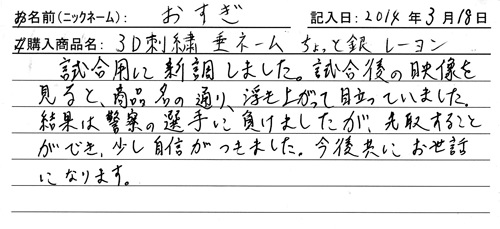 お名前(ニックネーム): おすぎ 記入日: 2014年3月18日
ご購入商品名: 3D刺繍 垂ネーム ちょっと銀 レーヨン
試合用に新調しました。試合後の映像を
見ると、商品名の通り、浮き上がって目立っていました。
結果は警察の選手に負けましたが、先取すること
ができ、少し自信がつきました。今後共にお世話
になります。